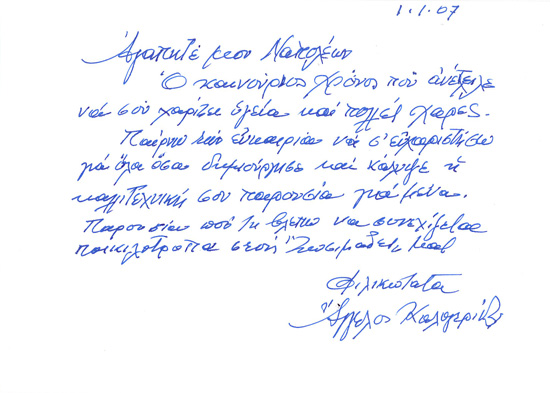 1.1.07
Ἀγαπητέ μου Ναπολέων
Ὁ καινούργιος χρόνος ποὺ ἀνέτειλε
νά σοῦ χαρίζει ὑγεία καί πολλές χαρές.
Παίρνω τήν εὐκαιρία νά σ' εὐχαριστήσω
γιά ὅλα ὅσα δημιούργησε καί κάλυψε ἡ
καλλιτεχνική σου παρουσία γιά μένα.
Παρουσία πού τή βλέπω νά συνεχίζεται
ποικιλότροπα στή
Φιλικώτατα
Ἄγγελος